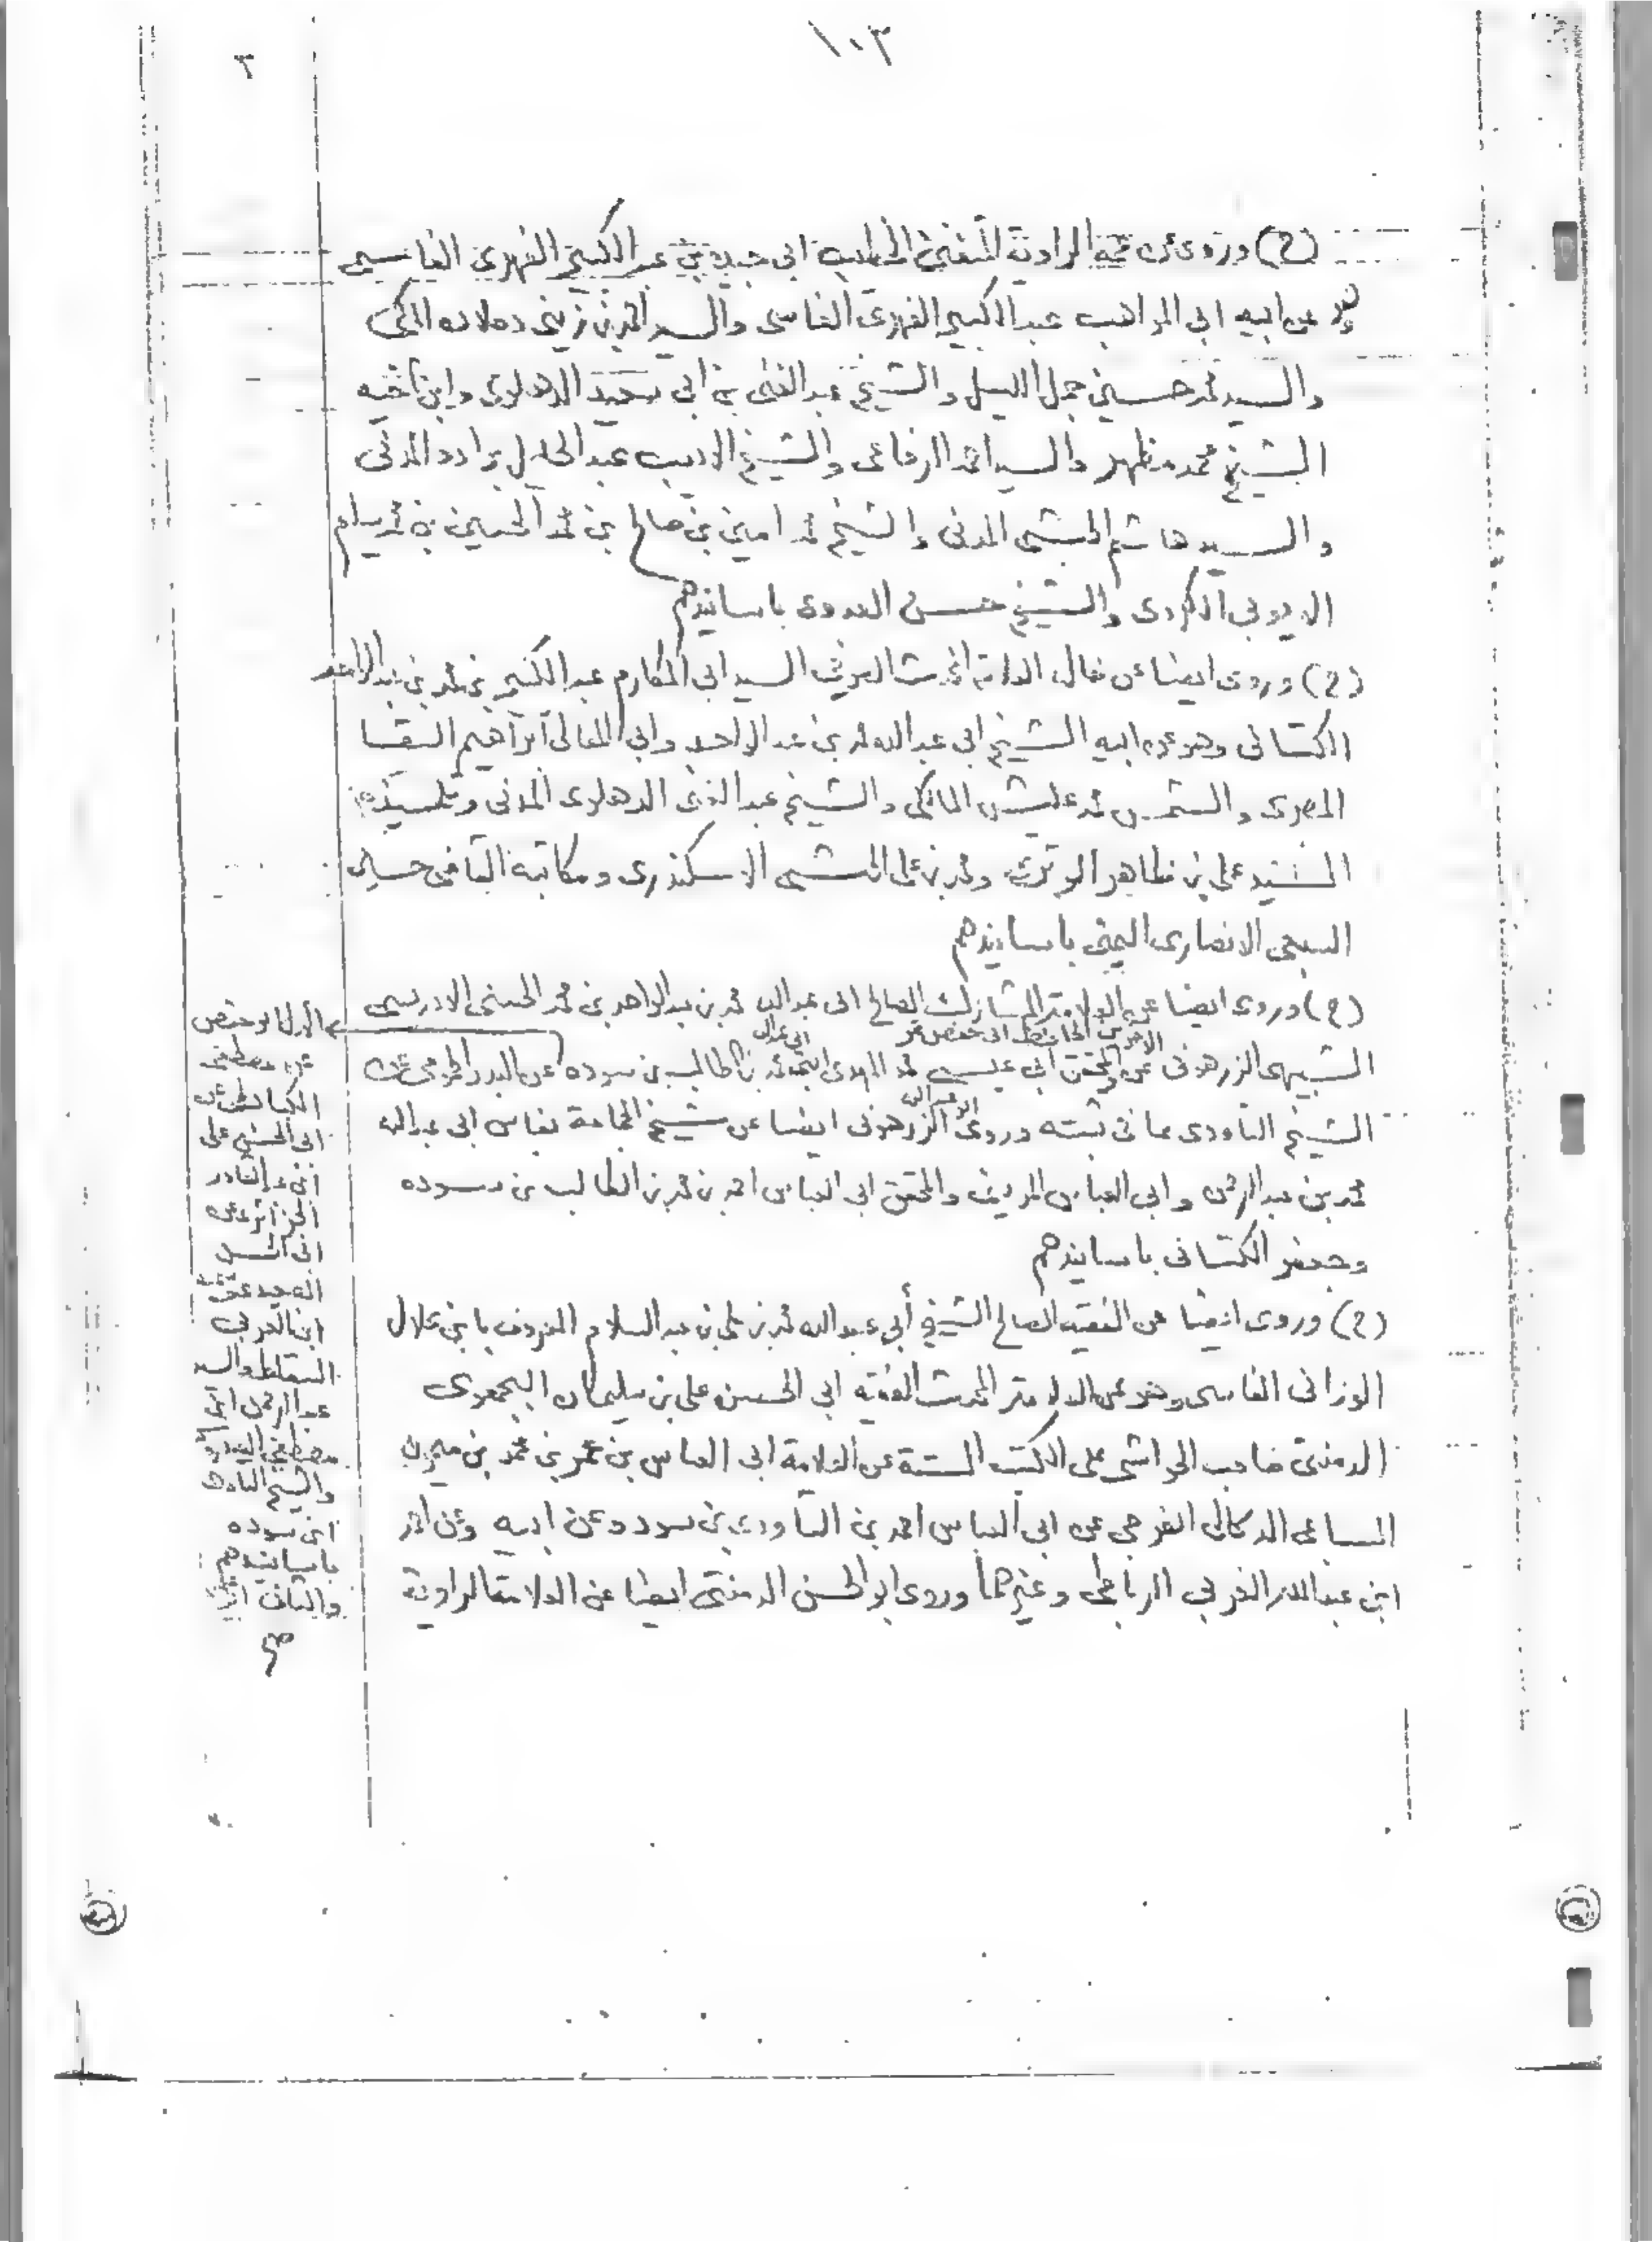 ١٠٣
٣
(ح) وروى عن محمد الراوية المتفنن الخطيب ابى جيدة بن عبد الكبير الفهرى الفاسى
عن ابيه ابى المواهب عبد الكبير الفهرى الفاسى والسيد احمد بن زينى دحلان المكى
والسيد محمد حسين جمل الليل والشيخ عبد الغنى بن ابى سعيد الدهلوى وابن اخيه
الشيخ محمد مظهر والسيد احمد الرفاعى والشيخ الاديب عبد الجليل برادة المدنى
والسيد هاشم الحبشى المدنى والشيخ محمد امين بن صالح بن محمد الحسين بن محمد سليم
الايوبى الكردى والشيخ حسن العدوى باسانيدهم
(ح) وروى ايضا عن خاله العلامة المحدث الصوفى السيد ابى المكارم عبد الكبير بن محمد بن عبد الواحد
الكتانى وهو عن ابيه الشيخ ابى عبد الله محمد بن عبد الواحد وابى المعالى ابراهيم السقا
المصرى والشمس محمد عليش المالكى والشيخ عبد الغنى الدهلوى المدنى وتلميذه
السيد على بن ظاهر الوترى ومحمد بن على الحبشى الاسكندرى ومكاتبة القاضى حسين
السبعى الانصارى اليمنى باسانيدهم
(ح) وروى ايضا عن العلامة المشارك الصالح ابى عبد الله محمد بن عبد الواحد بن محمد الحسنى الادريسى
الحافظ ابى حفص عمر
ابى عبد الله
الشبيهى الزرهونى عن والمحقق ابى عيسى محمد المهدى ابن محمد بن الطالب بن سوده عن البدر الحمومى عن
ابو عبد الله
الشيخ التاودى بما فى ثبته وروى الزرهونى ايضا عن شيخ الجماعة بفاس ابى عبد الله
محمد بن عبد الرحمن وابى العباس المرينى والمحقق ابى العباس احمد بن محمد بن الطالب بن سوده
وجعفر الكتانى باسانيدهم
(ح) وروى ايضا عن الفقيه الصالح الشيخ أبي عبد الله محمد بن على بن عبد السلام المعروف بابن علال
الوزانى الفاسى وهو عن العلامة المحدث الفقيه ابى الحسن على بن سليمان البجمعوى
الدمنتى صاحب الحواشى على الكتب الستة عن العلامة ابى العباس بن عمر بن محمد بن ميمون
السباعى الدكالى الفرجى عن ابى العباس احمد بن التاودى بن سوده عن ابيه وعن احمد
ابن عبد الله الغربى الرباطى وغيرهما وروى ابو الحسن الدمنتى ايضا عن العلامة الراوية
الأول ابو حفص
عن مصطفى
الكبابطى عن
ابى الحسن على
ابن عبد القادر
الجزائرى عن
ابى الحسن
ابن العربى
السقاط والسيد
عبد الرحمن ابن
مصطفى العيدروس
والشيخ التاودى
ابن سوده
باسانيدهم
والثانى
صح